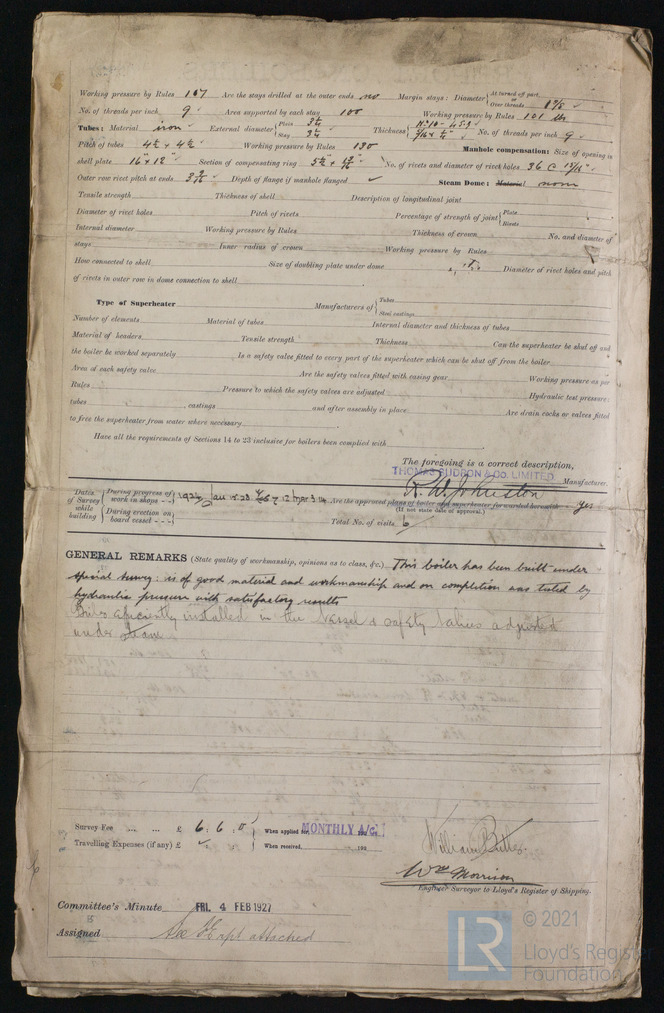 Working pressure by Rules 167 Are the stays drilled at the outer ends no Margin stays: Diameter { At turned off part, or Over threads 1 5/8"
No. of threads per inch 9 Area supported by each stay 100 Working pressure by Rules 181 lbs
Tubes: Material iron External diameter { Plain 3¼ Stay 3¼ Thickness No. of threads per inch 9
Pitch of tubes 4½ x 4½ Working pressure by Rules 190 Manhole compensation: Size of opening in
shell plate 16" x 12" Section of compensating ring No. of rivets and diameter of rivet holes 36 @ 15/16"
Outer row rivet pitch at ends Depth of flange if manhole flanged ✓ Steam Dome: Material none
Tensile strength Thickness of shell Description of longitudinal joint
Diameter of rivet holes Pitch of rivets Percentage of strength of joint { Plate Rivets
Internal diameter Working pressure by Rules Thickness of crown No. and diameter of
stays Inner radius of crown Working pressure by Rules
How connected to shell Size of doubling plate under dome Diameter of rivet holes and pitch
of rivets in outer row in dome connection to shell
Type of Superheater Manufacturers of { Tubes Steel castings
Number of elements Material of tubes Internal diameter and thickness of tubes
Material of headers Tensile strength Thickness Can the superheater be shut off and
the boiler be worked separately Is a safety valve fitted to every part of the superheater which can be shut off from the boiler
Area of each safety valve Are the safety valves fitted with easing gear Working pressure as per
Rules Pressure to which the safety valves are adjusted Hydraulic test pressure:
tubes , castings and after assembly in place Are drain cocks or valves fitted
to free the superheater from water where necessary
Have all the requirements of Sections 14 to 23 inclusive for boilers been complied with
The foregoing is a correct description,
THOMAS HUDSON & CO. LIMITED Manufacturer.
R. W. Johnston
Dates of Survey while building { During progress of work in shops - - During erection on board vessel - - - Are the approved plans of boiler and superheater forwarded herewith yes
(If not state date of approval.)
Total No. of visits 6
GENERAL REMARKS (State quality of workmanship, opinions as to class, &c.) This boiler has been built under
special survey: is of good material and workmanship and on completion was tested by
hydraulic pressure with satisfactory results
Boiler efficiently installed in the Vessel & safety valves adjusted
under steam.
Survey Fee ... ... £ 6 : 6 : 0 When applied for, MONTHLY A/c 192
Travelling Expenses (if any) £ When received, 192
William Butler.
Wm Morrison
Engineer Surveyor to Lloyd's Register of Shipping.
Committee's Minute FRI. 4 FEB 1927
Assigned See F.E. rpt attached
LR © 2021
Lloyd's Register
Foundation